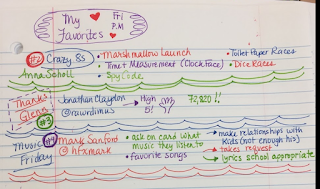 My Favorites
Fri P.M
#2 Crazy 8s
Anna Scholl
• Marshmallow Launch
• Time + Measurement (Clock Face)
• Spy Code
• Toilet Paper Races
• Dice Races
Thanks Glenn
#3
Jonathan Claydon
@rawrdimus
→ High 5!
72,820!!
Music Friday
#4
Mark Sanford
@hfxmark
• ask on card what music they listen to
• favorite songs
• make relationships with kids (not enough his)
→ takes request
→ lyrics school appropriate